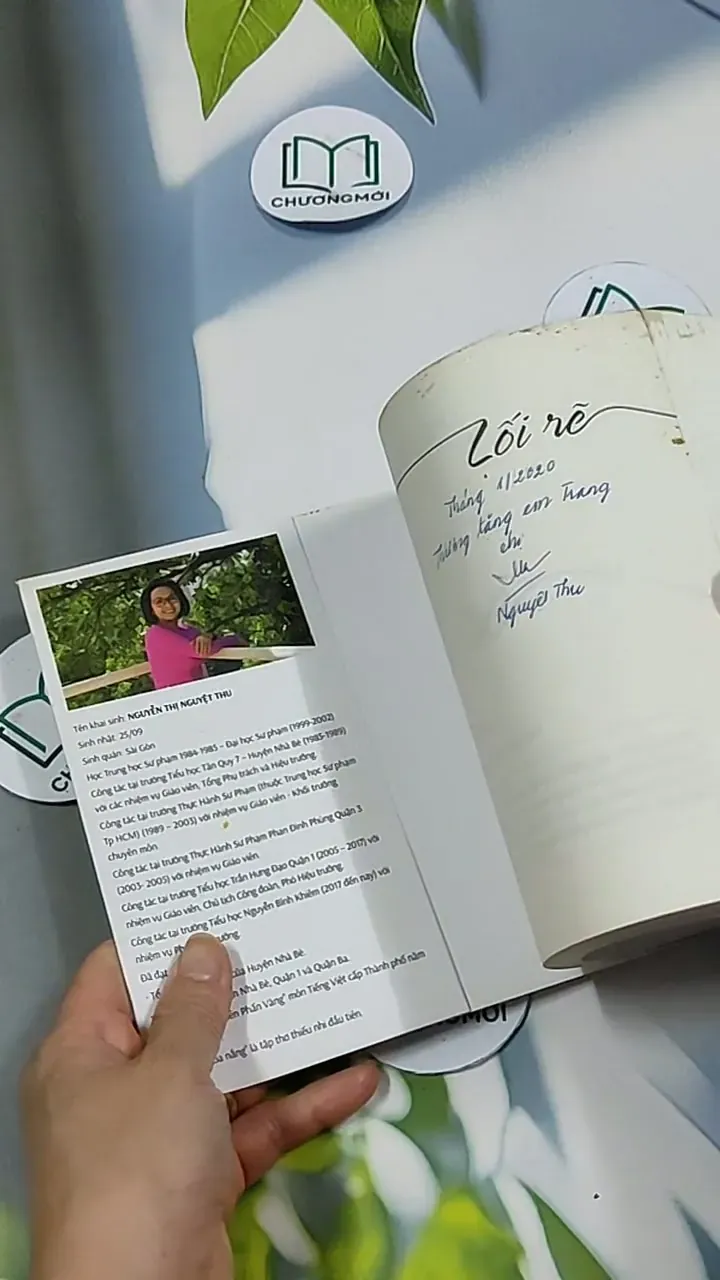 CHƯƠNGMỚI
Lối rẽ
Tháng 1/2020
Thương tặng em Trang
chị
Nguyệt Thu
Tên khai sinh: NGUYỄN THỊ NGUYỆT THU
Sinh nhật: 25/09
Sinh quán: Sài Gòn
Học Trung học Sư phạm 1984-1985 – Đại học Sư phạm (1999-2002)
Công tác tại trường Tiểu học Tân Quy 7 – Huyện Nhà Bè (1985-1989)
với các nhiệm vụ Giáo viên, Tổng Phụ trách và Hiệu trưởng.
Công tác tại trường Thực Hành Sư Phạm (thuộc Trung học Sư phạm
Tp HCM) (1989 – 2003) với nhiệm vụ Giáo viên - Khối trưởng
chuyên môn
Công tác tại trường Thực Hành Sư Phạm Phan Đình Phùng Quận 3
(2003- 2005) với nhiệm vụ Giáo viên
Công tác tại trường Tiểu học Trần Hưng Đạo Quận 1 (2005 – 2017) với
nhiệm vụ Giáo viên, Chủ tịch Công đoàn, Phó Hiệu trưởng.
Công tác tại trường Tiểu học Nguyễn Bỉnh Khiêm (2017 đến nay) với
nhiệm vụ
Đã đạt của Huyện Nhà Bè.
Nhà Bè, Quận 1 và Quận Ba.
Phấn Vàng" môn Tiếng Việt cấp Thành phố năm
nắng" là tập thơ thiếu nhi đầu tiên.